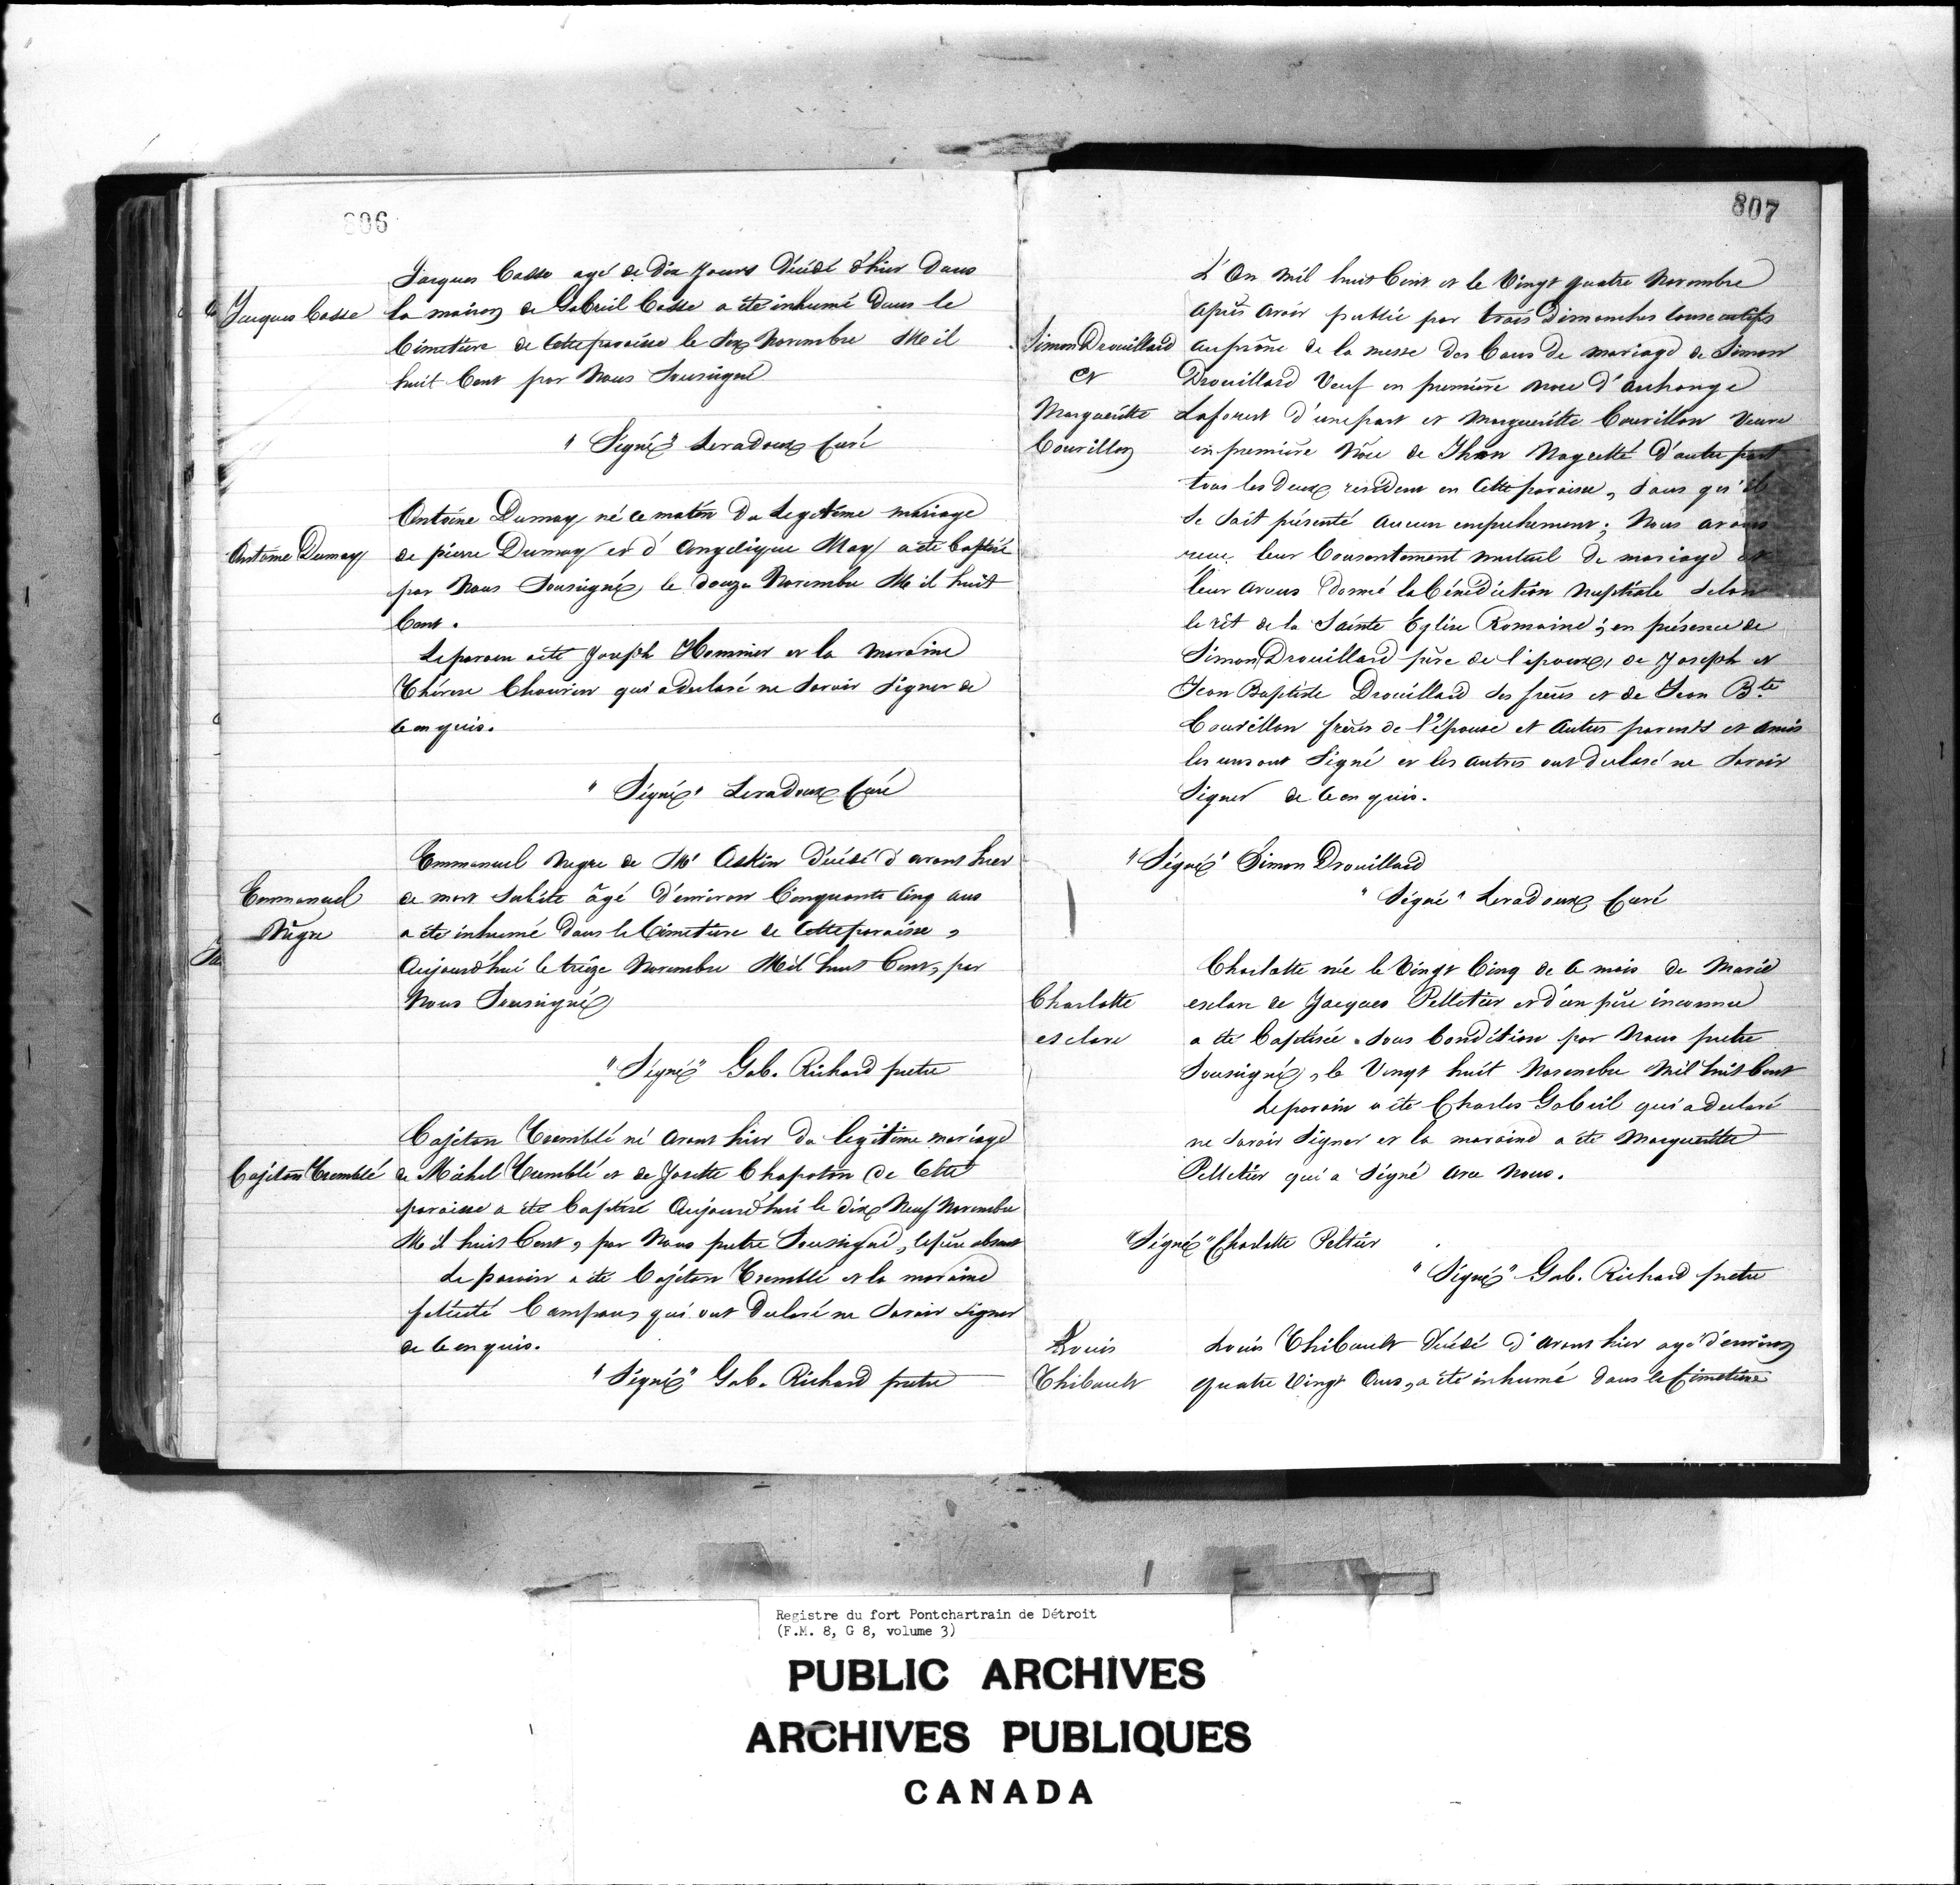 806
Jacques Casse agé de dix Jours décédé d'hier dans
Jacques Casse
la maison de Gabriel Casse a été inhumé dans le
Cimetière de Cette paroisse le Six Novembre Mil
huit Cent par Nous Soussigné
"Signé" Levadoux Curé
Antoine Dumay né ce matin du Legitime mariage
Antoine Dumay
de pierre Dumay et d'Angelique May a été Baptisé
par Nous Soussigné, le douze Novembre Mil huit
Cent.
Le parain a été Joseph Hommier et la maraine
Thérese Chauvin qui a declaré ne Savoir Signer de
Ce enquis.
"Signé" Levadoux Curé
Emmanuel Negre de Mr Askin décédé d'avant hier
Emmanuel
Nègre
de mort Subite âgé d'environ Cinquante Cinq ans
a été inhumé dans le Cimetière de Cette paroisse,
Aujourd'hui le treize Novembre Mil huit Cent, par
Nous Soussigné
"Signé" Gab. Richard pretre
Cajétan Tremblé né avant hier du legitime mariage
Cajétan Tremblé
de Michel Tremblé et de Josette Chapoton de Cette
paroisse a été Baptisé Aujourd'hui le dix Neuf Novembre
Mil huit Cent, par Nous pretre Soussigné, le père absent
Le parain a été Cajétan Tremblé et la maraine
félicité Campau, qui ont declaré ne Savoir Signer
de Ce enquis.
"Signé" Gab. Richard pretre
807
L'An Mil huit Cent et le Vingt quatre Novembre
Après avoir publié par trois Dimanches Consecutifs
Simon Drouillard
et
Margueritte
Courillon
au prône de la messe des bans de mariage de Simon
Drouillard Veuf en première noce d'Anhange
Laforest d'une part et Margueritte Courillon Veuve
en première Nôce de Jhon Magretté d'autre part
tous les deux residents en Cette paroisse, Sans qu'il
Se Soit présenté Aucun empechement; Nous avons
recu leur Consentement mutuel de mariage et
leur avons donné la Bénédiction Nuptiale Selon
le rit de la Sainte Eglise Romaine; en présence de
Simon Drouillard père de l'époux, de Joseph et
Jean Baptiste Drouillard Ses frères et de Jean Bte
Courillon frères de l'épouse et Autres parents et Amis
les uns ont Signé et les autres ont declaré ne Savoir
Signer de Ce enquis.
"Signé" Simon Drouillard
"Signé" Levadoux Curé
Charlotte née le Vingt Cinq de Ce mois de Marie
Charlotte
esclave
esclave de Jacques Pelletier et d'un père inconnu
a été Baptisée Sous Condition par Nous pretre
Soussigné, le Vingt huit Novembre Mil huit Cent
Le parain a été Charles Gabriel qui a declaré
ne Savoir Signer et la maraine a été Margueritte
Pelletier qui a Signé avec Nous.
"Signé" Charlotte Peltier
"Signé" Gab. Richard pretre
Louis
Thibault
Louis Thibault décédé d'avant hier agé d'environ
quatre Vingt Ans, a été inhumé dans le Cimetière
Registre du fort Pontchartrain de Détroit
(F.M. 8, G 8, volume 3)
PUBLIC ARCHIVES
ARCHIVES PUBLIQUES
CANADA